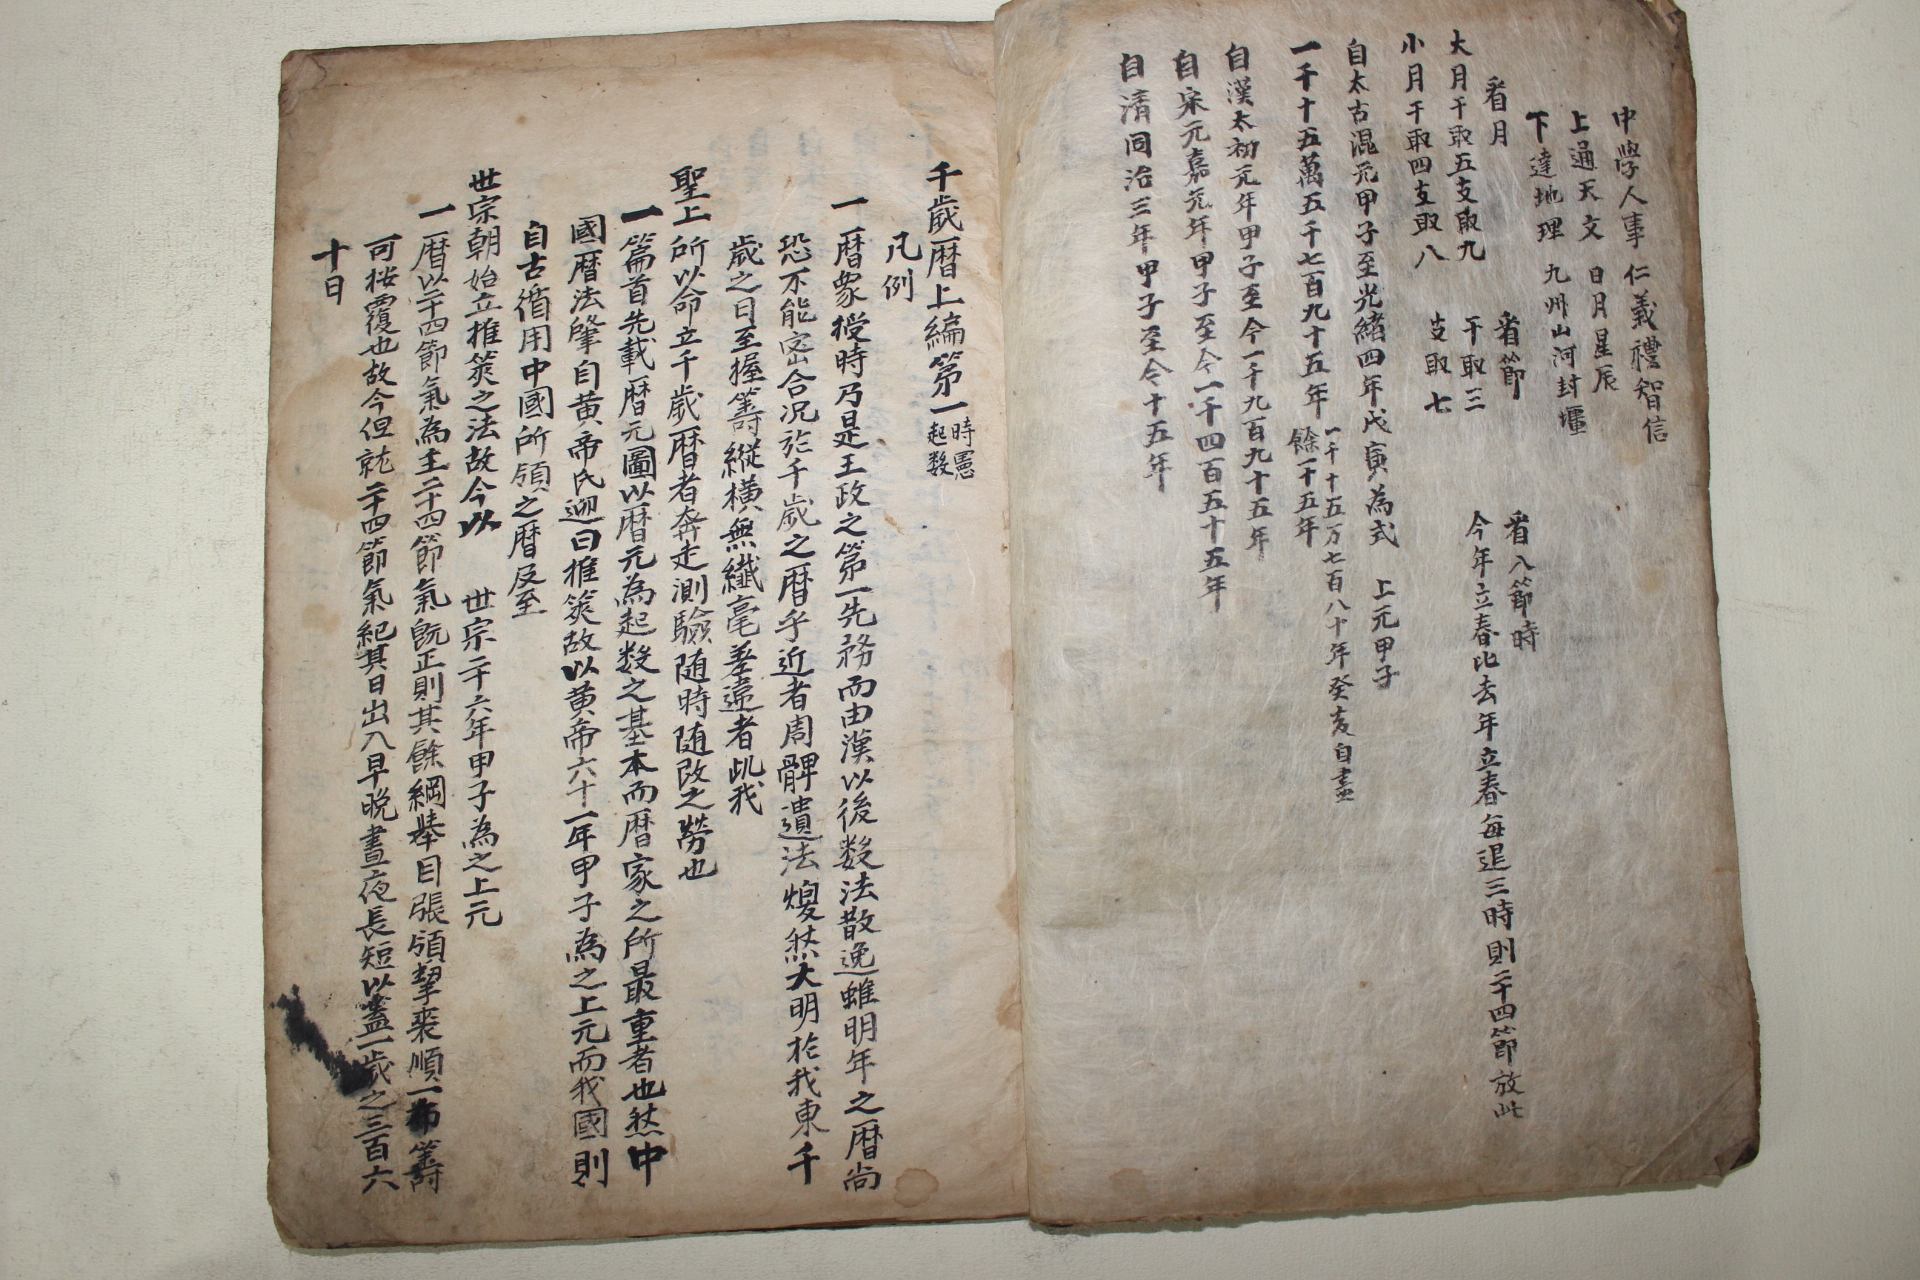 中學人事 仁義禮智信
上通天文 日月星辰
下達地理 九州山河封壃
看月
大月干取五支取九
小月干取四支取八
看節
干取三
支取七
看八節時
今年立春比去年立春每退三時則二十四節放此
自太古混元甲子至光緖四年戊寅為式 上元甲子
一千十五萬五千七百九十五年 一千十五万七百八十年癸亥自盡
餘一十五年
自漢太初元年甲子至今一千九百九十五年
自宋元嘉元年甲子至今一千四百五十五年
自淸同治三年甲子至今十五年
千歲曆上編第一 時憲
起数
凡例
一曆象授時乃是王政之第一先務而由漢以後数法散逸雖明年之曆尙
恐不能密合況於千歲之曆乎近者周髀遺法煥然大明於我東千
歲之日至握籌縱橫無纖毫差違者此我
聖上所以命立千歲曆者奔走測驗随時随改之勞也
一篇首先載曆元圖以曆元為起数之基本而曆家之所最重者也然中
國曆法肇自黃帝氏迎日推筴故以黃帝六十一年甲子為之上元而我國則
自古循用中國所頒之曆及至
世宗朝始立推筴之法故今以 世宗二十六年甲子為之上元
一曆以二十四節氣為主二十四節氣旣正則其餘綱擧目張領挈裘順一布籌
可按覆也故今但就二十四節氣紀其日出入早晩晝夜長短以盡一歲之三百六
十日